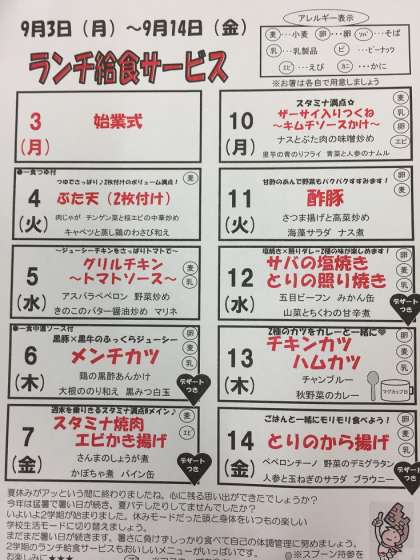 9月3日（月）～9月14日（金）
ランチ給食サービス
アレルギー表示
麦…小麦 卵…卵 そば…そば
乳…乳製品 ピ…ピーナツ
エビ…えび カニ…かに
※お箸は各自で用意しましょう
3
(月)
始業式
4
(火)
●一食つゆ付
つゆでさっぱり♪2枚付けのボリューム満点！
ぶた天（2枚付け）
肉じゃが チンゲン菜と桜エビの中華炒め
キャベツと蒸し鶏のわさび和え
麦
乳
5
(水)
～ジューシーチキンをさっぱりトマトで～
グリルチキン
～トマトソース～
アスパラペペロン 野菜炒め
きのこのバター醤油炒め マリネ
麦
乳
6
(木)
●一食中濃ソース付
黒豚×黒牛のふっくらジューシー
メンチカツ
鶏の黒酢あんかけ
大根ののり和え 黒みつ白玉
麦
卵
乳
デザートつき
7
(金)
週末を乗りきるスタミナ満点Wメイン♪
スタミナ焼肉
エビかき揚げ
さんまのしょうが煮
かぼちゃ煮 パイン缶
麦
エビ
デザートつき
10
(月)
スタミナ満点☆
ザーサイ入りつくね
～キムチソースかけ～
ナスとぶた肉の味噌炒め
里芋の青のりフライ 青菜と人参のナムル
麦
卵
乳
エビ
11
(火)
甘酢のあんで野菜もパクパクすすみます！
酢豚
さつま揚げと高菜炒め
海藻サラダ ナス煮
麦
卵
乳
12
(水)
塩焼き×照りダレ～2種の味が楽しめます！
サバの塩焼き
とりの照り焼き
五目ビーフン みかん缶
山菜とちくわの甘辛煮
麦
デザートつき
13
(木)
2種のカツをカレーと一緒に
チキンカツ
ハムカツ
チャンプルー
秋野菜のカレー
麦
卵
乳
マグカップ付
14
(金)
ごはんと一緒にモリモリ食べよう！
とりのから揚げ
ペペロンチーノ 野菜のデミグラタン
人参と玉ねぎのサラダ ブラウニー
麦
卵
乳
デザートつき
夏休みがアッという間に終わりましたね。心に残る思い出ができたでしょうか？
今年は猛暑で暑い日が続き、夏バテしたりしてませんでしたか？
いよいよ2学期が始まります。休みモードだった頭と身体をいつもの楽しい
学校生活モードに切り替えましょう。
まだまだ暑い日が続きます。暑さに負けずしっかり食べて自分の体調管理に努めましょう。
2学期のランチ給食サービスもおいしいメニューがいっぱいです。
お楽しみに★★★